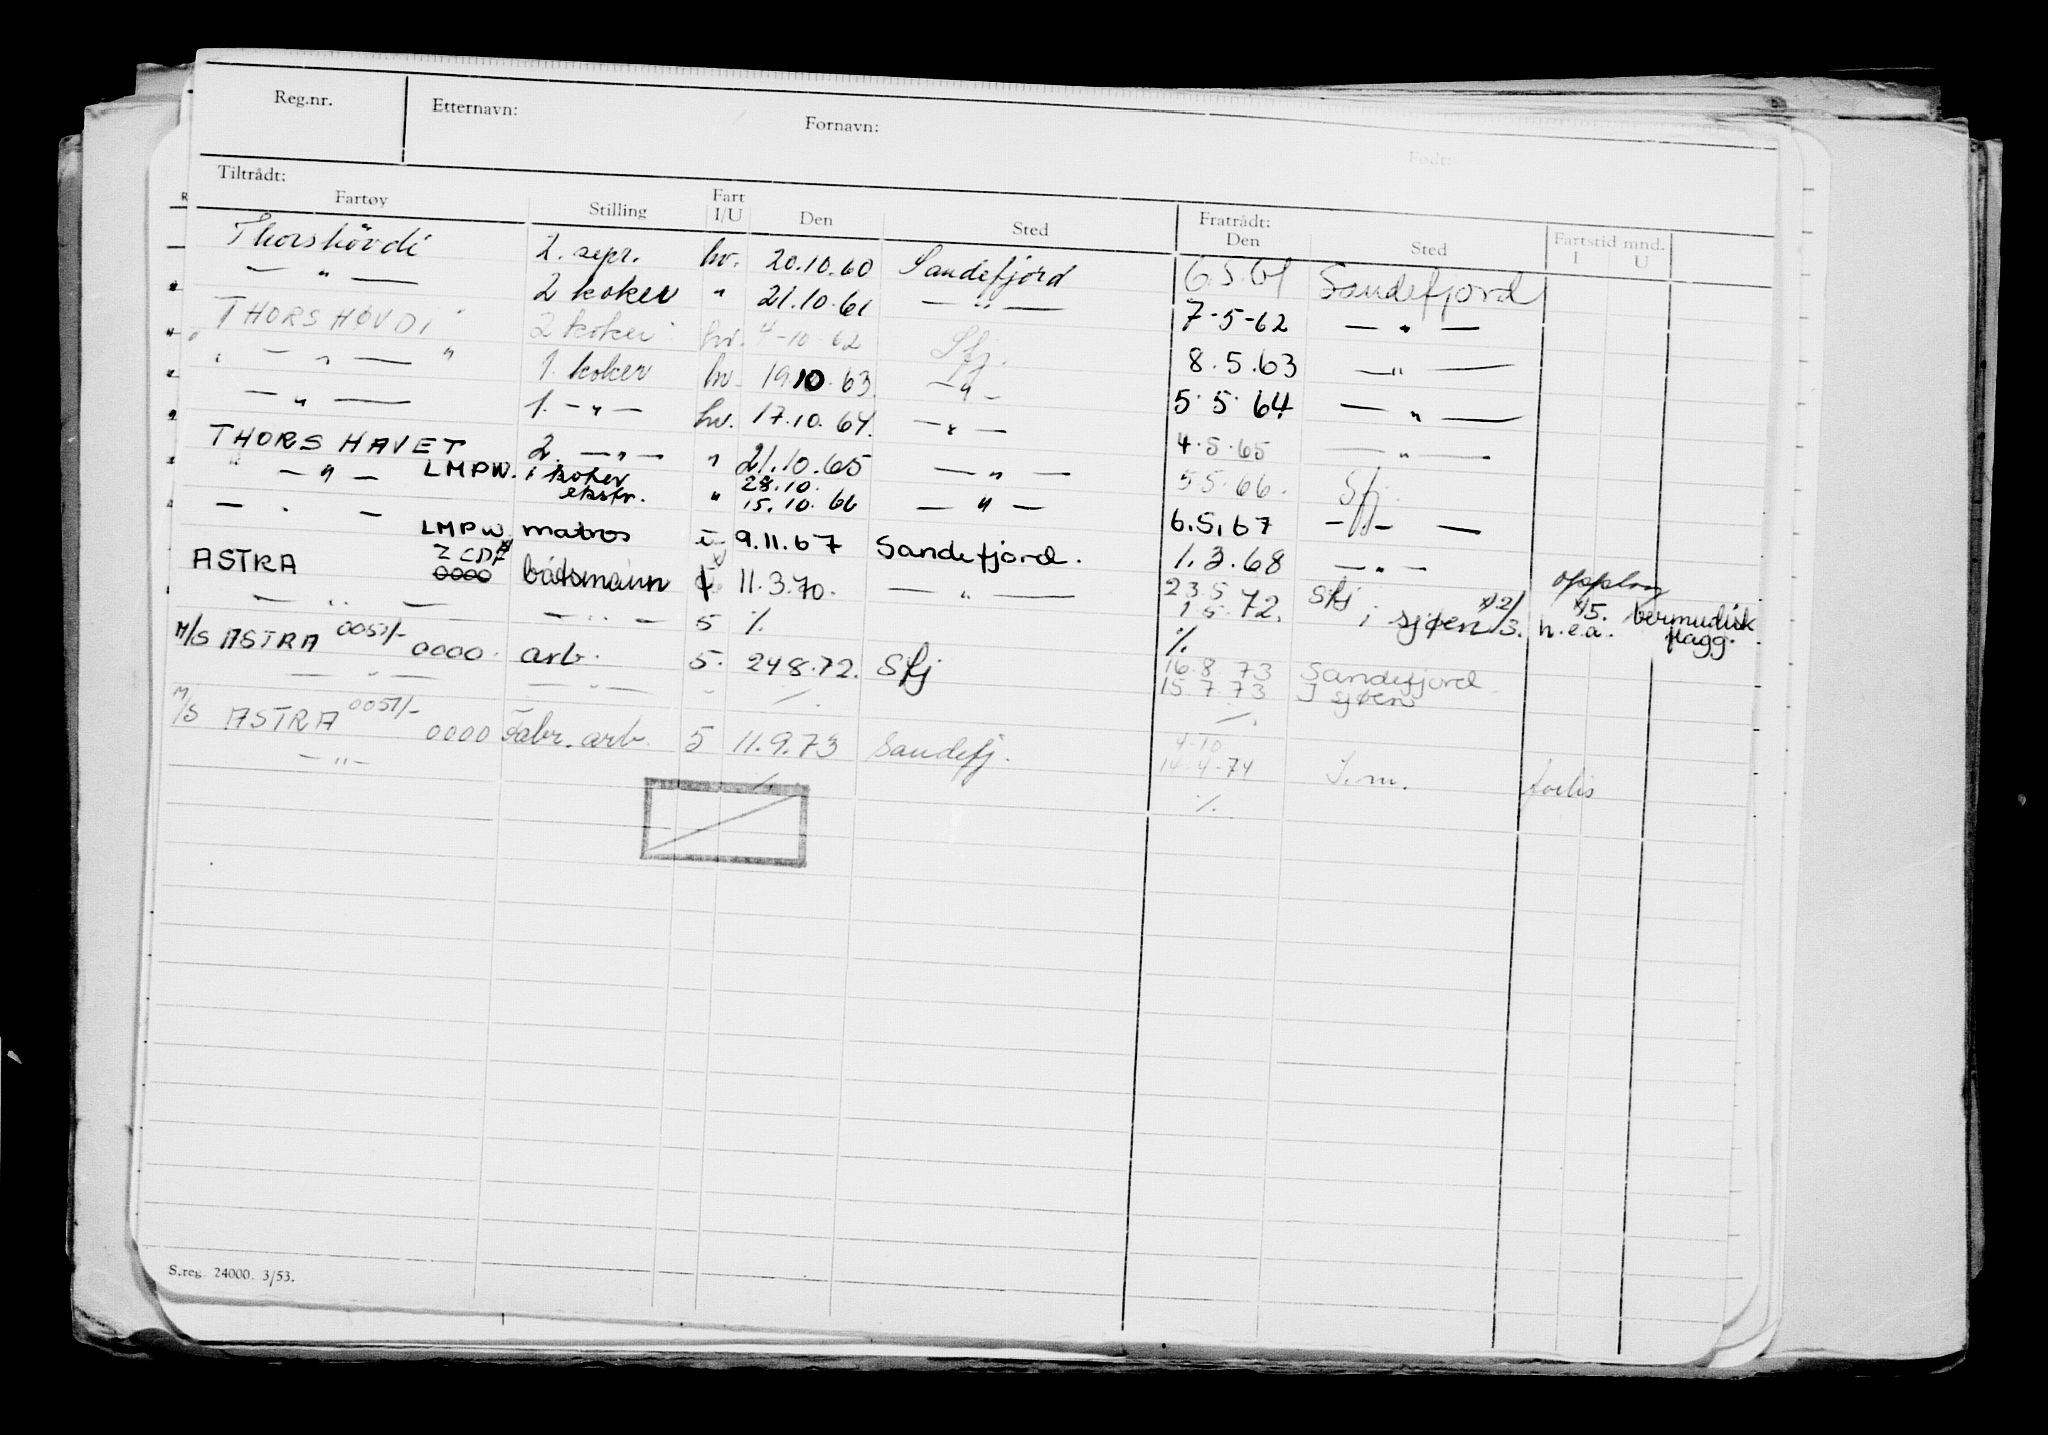 Reg.nr. Etternavn: Fornavn: Født:
Tiltrådt: Fratrådt:
Fartøy Stilling Fart I/U Den Sted Den Sted Fartstid mnd. I U
Thorshövdi 2. sepr. hv. 20.10.60 Sandefjord 6.5.61 Sandefjord
— " — 2 koker " 21.10.61 — " — 7-5-62 — " —
THORSHØVDI 2 koker hv. 4-10-62 Sfj. 8.5.63 — " —
" — " — " 1. koker hv. 19.10.63. — " — 5.5.64 — " —
— " — 1. — " — hv. 17.10.64. — " — 4.5.65 — " —
THORSHAVET 2. — " — " 21.10.65 — " — 5.5.66. Sfj.
" — " — LMPW. 1 koker ekstr. " 28.10. 15.10.66 — " — 6.5.67 — " —
— " — LMPW matros u 9.11.67 Sandefjord. 1.3.68 — " —
ASTRA 0000 båtsmann 11.3.70. — " — 23.5 72. Sfj opplag
— " — — " — 5 /. 1.5. i sjøen 3. h.e.a. 5. bermudisk flagg.
M/S ASTRA 0051/- 0000. arb. 5. 24.8.72. Sfj /. 16.8.73 Sandefjord
— " — — " — " /. 15.7.73 I sjøen
M/S ASTRA 0051/- 0000 Fabr. arb. 5 11.9.73 Sandefj. /. 4-10
— " — /. 14-4-74 I.m.
/.
S.reg. 24000. 3/53.